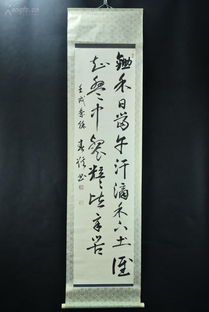 鋤禾日當午汗滴禾下土誰
知盤中餐粒粒皆辛苦
壬戌季秋
書